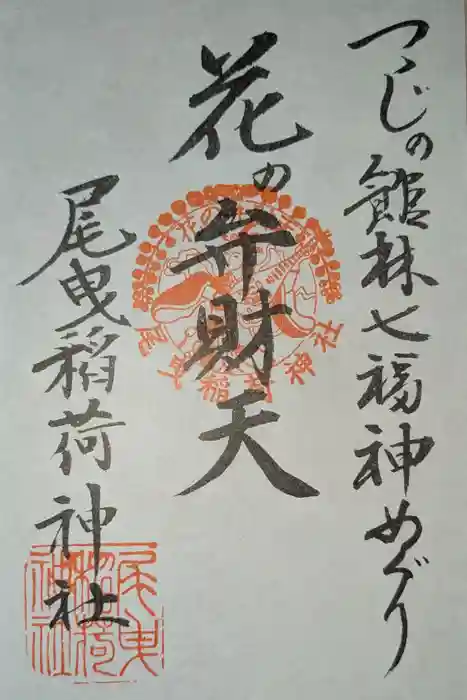 つゝじの館林七福神めぐり
花の弁財天
尾曳稲荷神社
尾曳稲荷神社
尾曳稲荷神社